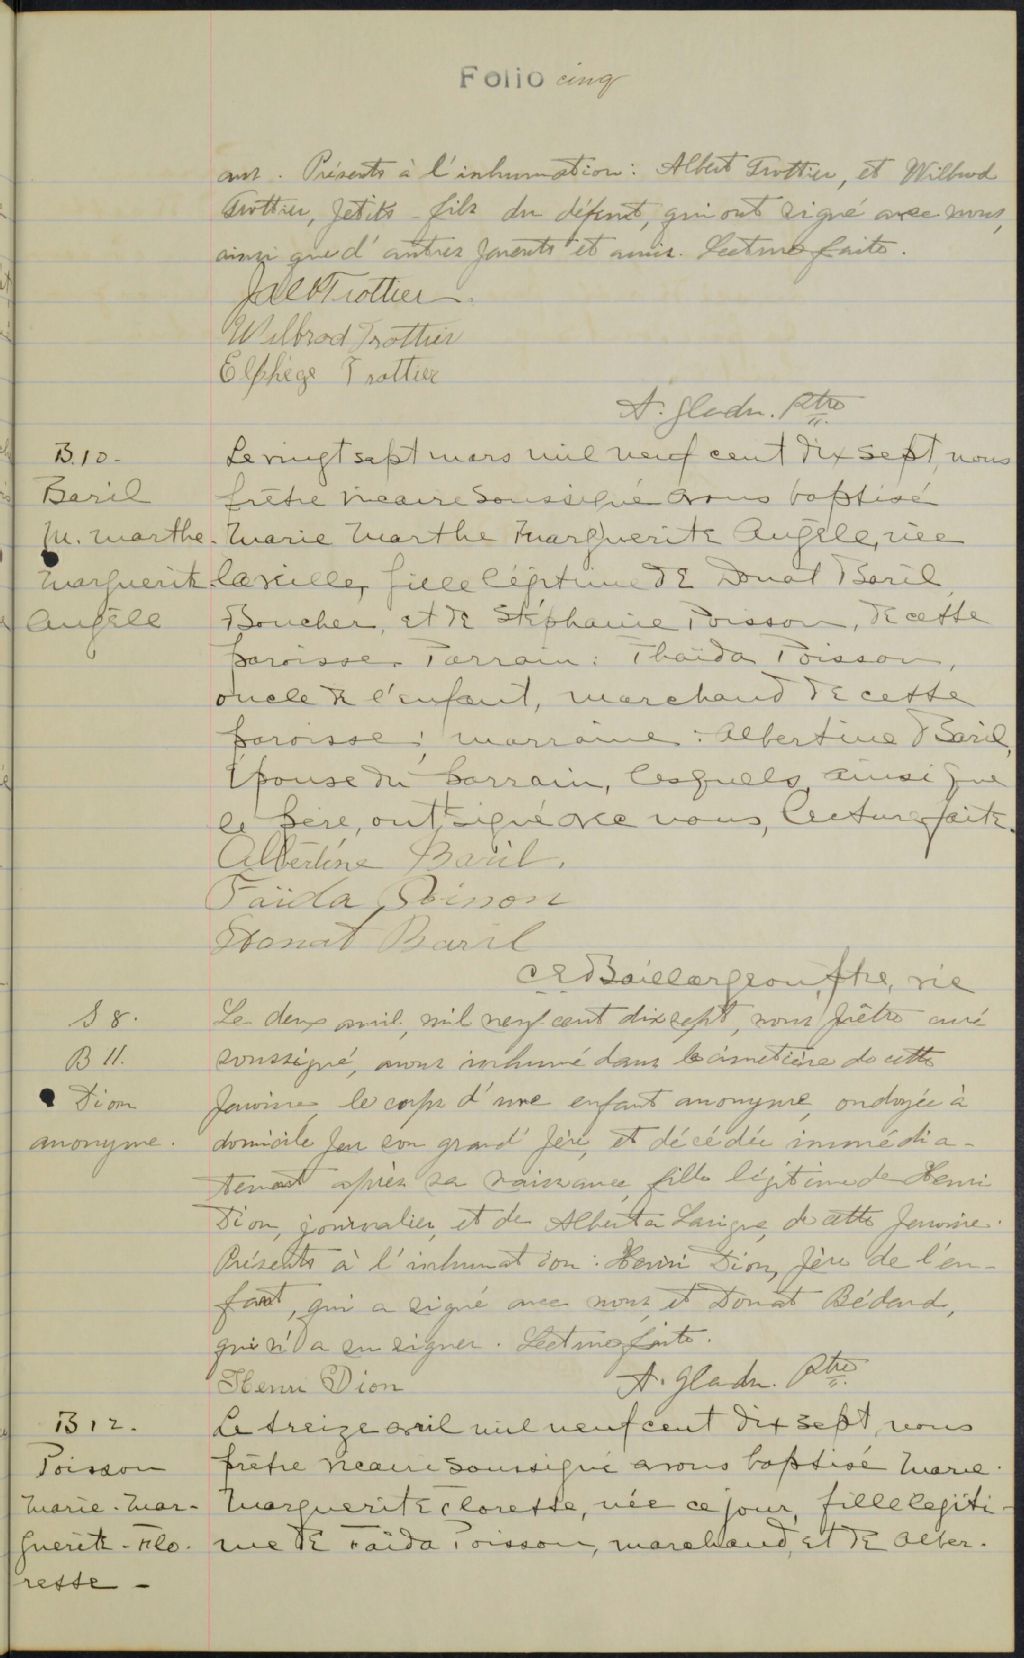 Folio cinq
ans. Présents à l'inhumation: Albert Trottier, et Wilbrod
Trottier, petits-fils du défunt, qui ont signé avec nous,
ainsi que d'autres parents et amis. Lecture faite.
J Alb Trottier
Wilbrod Trottier
Elphège Trottier
A. Ptre
B. 10.
Baril
M. Marthe
Marguerite
Angèle
Le vingt sept mars mil neuf cent dix sept, nous
prêtre vicaire soussigné avons baptisé
Marie Marthe Marguerite Angèle, née
la veille, fille légitime de Donat Baril,
Boucher, et de Stéphanie Poisson, de cette
paroisse. Parrain: Thaïda Poisson,
oncle de l'enfant, marchand de cette
paroisse; marraine: Albertine Baril,
épouse du parrain, lesquels, ainsi que
le père, ont signé avec nous, lecture faite.
Albertine Baril.
Faïda Poisson
Donat Baril
C E Baillargeon, ptre, vic
S 8.
B 11.
Dion
anonyme.
Le deux avril, mil neuf cent dix sept, nous prêtre curé
soussigné, avons inhumé dans le cimetière de cette
paroisse, le corps d'une enfant anonyme, ondoyée à
domicile par son grand' père, et décédée immédia-
tement après sa naissance, fille légitime de Henri
Dion, journalier, et de Alberta Lavigne, de cette paroisse.
Présents à l'inhumation: Henri Dion, père de l'en-
fant, qui a signé avec nous, et Donat Bédard,
qui n'a su signer. Lecture faite.
Henri Dion
A. Ptre
B 12.
Poisson
Marie-Mar-
guerite-Flo-
resse -
Le treize avril mil neuf cent dix sept, nous
prêtre vicaire soussigné avons baptisé Marie-
Marguerite Floresse, née ce jour, fille légiti-
me de Faïda Poisson, marchand, et de Alber-